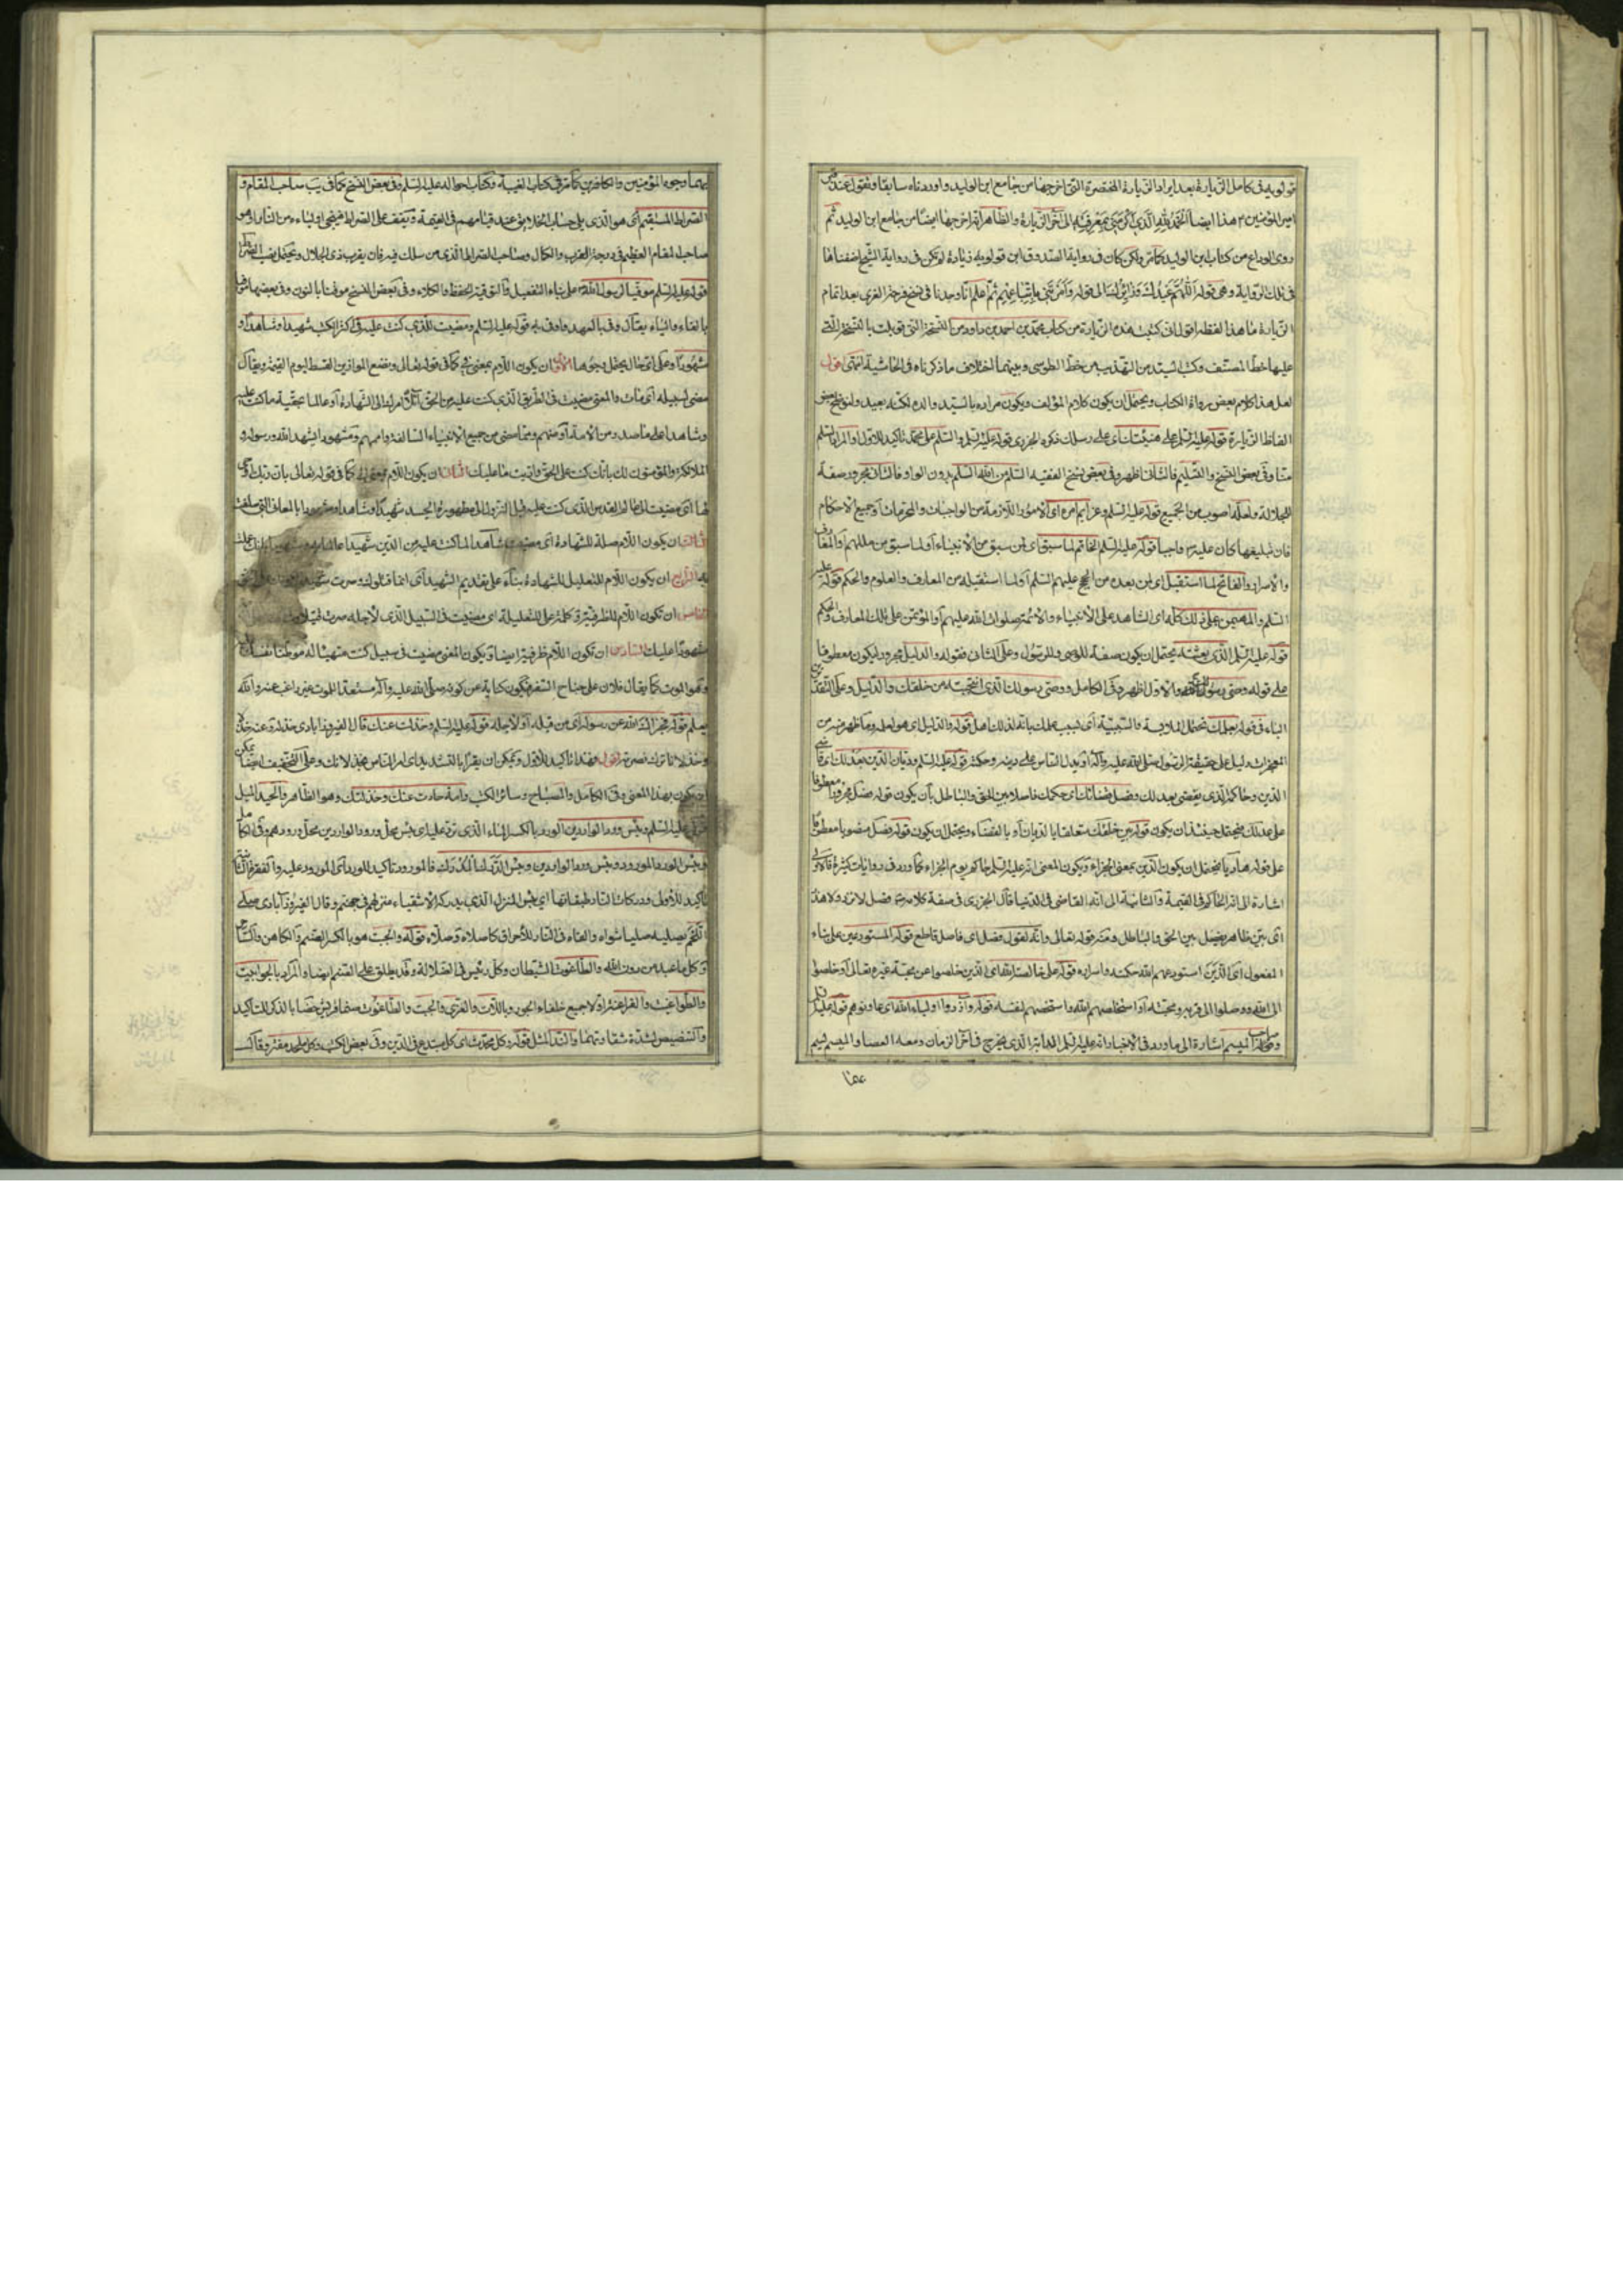 قولويه في كامل الزيارة بعد ايراد الزيارة المختصرة التي اخرجها من جامع ابن الوليد واوردناه سابقا وتقول عند قبر
امير المؤمنين ع هذا ايضا الحمد لله الذي اكرمني بمعرفته الى اخر الزيارة والظاهر انه اخرجها ايضا من جامع ابن الوليد ثم
روى الوداع من كتاب ابن الوليد كما مر ولكن كان في رواية الصدوق ابن قولويه زيادة لم تكن في رواية الشيخ اضفناها
في تلك الرواية وهي قوله اللهم عبدك وزائرك الى قوله ثم اعلم انا وجدنا في نسخ فرحة الغري بعد اتمام
الزيارة ما هذا لفظه اقول اني كتبت هذه الزيارة من كتاب محمد بن احمد بن داود من النسخة التي قوبلت بالنسخة التي
عليها خط المصنف وكتب السيد من التهذيب من خط الطوسي وبينهما اختلاف ما ذكرناه في الحاشية انتهى اقول
لعل هذا كلام بعض رواة الكتاب ويحتمل ان يكون كلام المؤلف ويكون مراده بالسيد والده لكنه بعيد ولنوضح بعض
الفاظ الزيارة قوله عليه السلم على هنيئتك اي على رسلك ذكره الجزري قوله عليه السلم والسلم على محمد تاكيد للاول او المراد السلم
منا وفي بعض النسخ والتسليم فالثاني اظهر وفي بعض نسخ الفقيه السلم من الله السلم بدون الواو فالثاني مجرور صفة
للجلالة ولعله اصوب من الجميع قوله عليه السلم وعزايم امره اي الامور اللازمة من الواجبات والمحرمات او جميع الاحكام
فان تبليغها كان عليه ص واجبا قوله عليه السلم الخاتم لما سبق اي لمن سبق من الانبياء او لما سبق من مللهم والمعارف
والاسرار والفاتح لما استقبل اي لمن بعده من الحجج عليهم السلم او لما استقبله من المعارف والعلوم والحكم قوله عليه
السلم والمهيمن على ذلك كله اي الشاهد على الانبياء والائمة صلوات الله عليهم او المؤتمن على تلك المعارف والحكم
قوله عليه السلم الذي بعثته يحتمل ان يكون صفة للوصي وللرسول وعلى الثاني فقوله والدليل مجرور ليكون معطوفا
على قوله وصي رسولك والاول اظهر وفي الكامل ووصي رسولك الذي انتجبته من خلقك والدليل وعلى التقديرين
الباء في قوله بعلمك تحتمل الملابسة والسببية اي بسبب علمك بانه لذلك اهل قوله والدليل اي هو لعلمه وما ظهر منه من
المعجزات دليل على حقيقة الرسول صلى الله عليه وآله او يدل الناس على دينه وحكمته قوله عليه السلم وديان الدين بعدلك اي قاضي
الدين وحاكمه الذي يقضي بعدلك وفصل قضائك اي حكمك فاصلا بين الحق والباطل بان يكون قوله فصل مجرورا معطوفا
على عدلك فيحتمل حينئذ ان يكون قوله بين خلقك متعلقا بالديان او بالقضاء ويحتمل ان يكون قوله وفصل منصوبا معطوفا
على قوله هاديا فيحتمل ان يكون الدين بمعنى الجزاء ويكون المعنى انه عليه السلم حاكم يوم الجزاء كما ورد في روايات كثيرة فالاولى
اشارة الى انه الحاكم في القيمة والثانية الى انه القاضي في الدنيا قال الجزري في صفة كلامه ص فصل لا نزر ولا هذر
اي بين ظاهر يفصل بين الحق والباطل ومنه قوله تعالى وانه لقول فصل اي فاصل قاطع قوله المستودعين على بناء
المفعول اي الذين استودعهم الله حكمته واسراره قوله على خالصة الله اي الذين خلصوا عن محبة غيره تعالى او خلصوا
الى الله ووصلوا الى قربه ومحبته او استخلصهم الله واستخصهم لنفسه قوله وآزروا اولياء الله اي عاونوهم قوله عليه السلم
وصاحب الميسم اشارة الى ما ورد في الاخبار انه عليه السلم الدابة الذي يخرج في آخر الزمان ومعه العصا والميسم ليسم
عصا
بهما وجوه المؤمنين والكافرين كما مر في كتاب الغيبة وكتاب احواله عليه السلم وفي بعض النسخ كما في يب صاحب المقام و
الصراط المستقيم اي هو الذي يلي حساب الخلايق عند قيامهم في القيمة ويقف على الصراط فينجي اولياءه من النار او هو
صاحب المقام العظيم في درجة القرب والكمال وصاحب الصراط الذي من سلك فيه فان بقرب ذي الجلال ويحتمل نصب الصراط
قوله عليه السلم موقيا لرسول الله ص على بناء التفعيل والتوقية الحفظ والكلاءة وفي بعض النسخ موقنا بالنون وفي بعضها موفيا
بالفاء والياء يقال وفى بالعهد واوفى به قوله عليه السلم ومضيت للذي كنت عليه في اكثر الكتب شهيدا وشاهدا و
مشهودا وعلى اي حال يحتمل وجوها الاول ان يكون اللام بمعنى في كما في قوله تعالى ونضع الموازين القسط ليوم القيمة ويقال
مضى لسبيله اي مات والمعنى مضيت في الطريق الذي كنت عليه من الحق آئلا امرك الى الشهادة او عالما بحقية ما كنت عليه
وشاهدا على ما صدر من الامة او منهم ومما مضى من جميع الانبياء السالفة واممهم ومشهودا يشهد الله ورسوله و
الملائكة والمؤمنون لك بانك كنت على الحق واديت ما عليك الثاني ان يكون اللام بمعنى الى كما في قوله تعالى بان ربك اوحى
لها اي مضيت الى عالم القدس الذي كنت عليه قبل النزول الى مطهورة الجسد شهيدا وشاهدا ومشهودا بالمعاني التي سلفت
الثالث ان يكون اللام صلة للشهادة اي مضيت شاهدا لما كنت عليه من الدين شهيدا عالما به
الرابع ان يكون اللام للتعليل للشهادة بناء على تقديم الشهيد اي انما قتلوك وصرت شهيدا
الخامس ان تكون اللام للظرفية وكلمة على للتعليلية اي مضيت في السبيل الذي لاجله صرت قتيلا
مشهودا عليك السادس ان تكون اللام ظرفية ايضا ويكون المعنى مضيت في سبيل كنت متهيئا له موطنا نفسك عليه
وهو الموت كما يقال فلان على جناح السفر فيكون كناية عن كونه صلى الله عليه وآله مستعدا للموت غير راغب عنه والله
يعلم قوله فجزاك الله عن رسوله اي من قبله او لاجله قوله عليه السلم وخذلت عنك قال الفيروزآبادي خذله وعنه خذلا
وخذلانا ترك نصرته اقول وهذا تاكيد للاول ويمكن ان يقرأ بالتشديد اي امر الناس بخذلانك وعلى التخفيف ايضا يمكن
ان يكون بهذا المعنى وفي الكامل والمصباح وسائر الكتب وامة حادت عنك وخذلتك وهو الظاهر والحيد الميل
قوله عليه السلم وبئس ورد الواردين الورد بالكسر الماء الذي ترد عليه اي بئس محل ورود الواردين محل ورودهم وفي الكامل
وبئس الورد المورود وبئس ورد الواردين وبئس الدرك المدرك فالمورود تاكيد للورد اي المورود عليه والفقرة الثانية
تاكيد للاول ودركات النار طبقاتها اي بئس المنزل الذي يدركه الاشقياء منزلهم في جهنم وقال الفيروزآبادي صلى
اللحم يصليه صليا شواه والقاه في النار للاحراق كاصلاه وصلاه قوله والجبت هو بالكسر الصنم والكاهن والساحر
وكل ما عبد من دون الله والطاغوت الشيطان وكل رئيس في الضلالة وقد يطلق على الصنم ايضا والمراد بالجوابيت
والطواغيت والفراعنة اولا جميع خلفاء الجور وباللات والعزى والجبت والطاغوت صنما قريش خصا بالذكر للتاكيد
والتنصيص لشدة شقاوتهما والند المثل قوله وكل محدث اي كل مبتدع في الدين وفي بعض الكتب وكل ملحد مفتر وقال